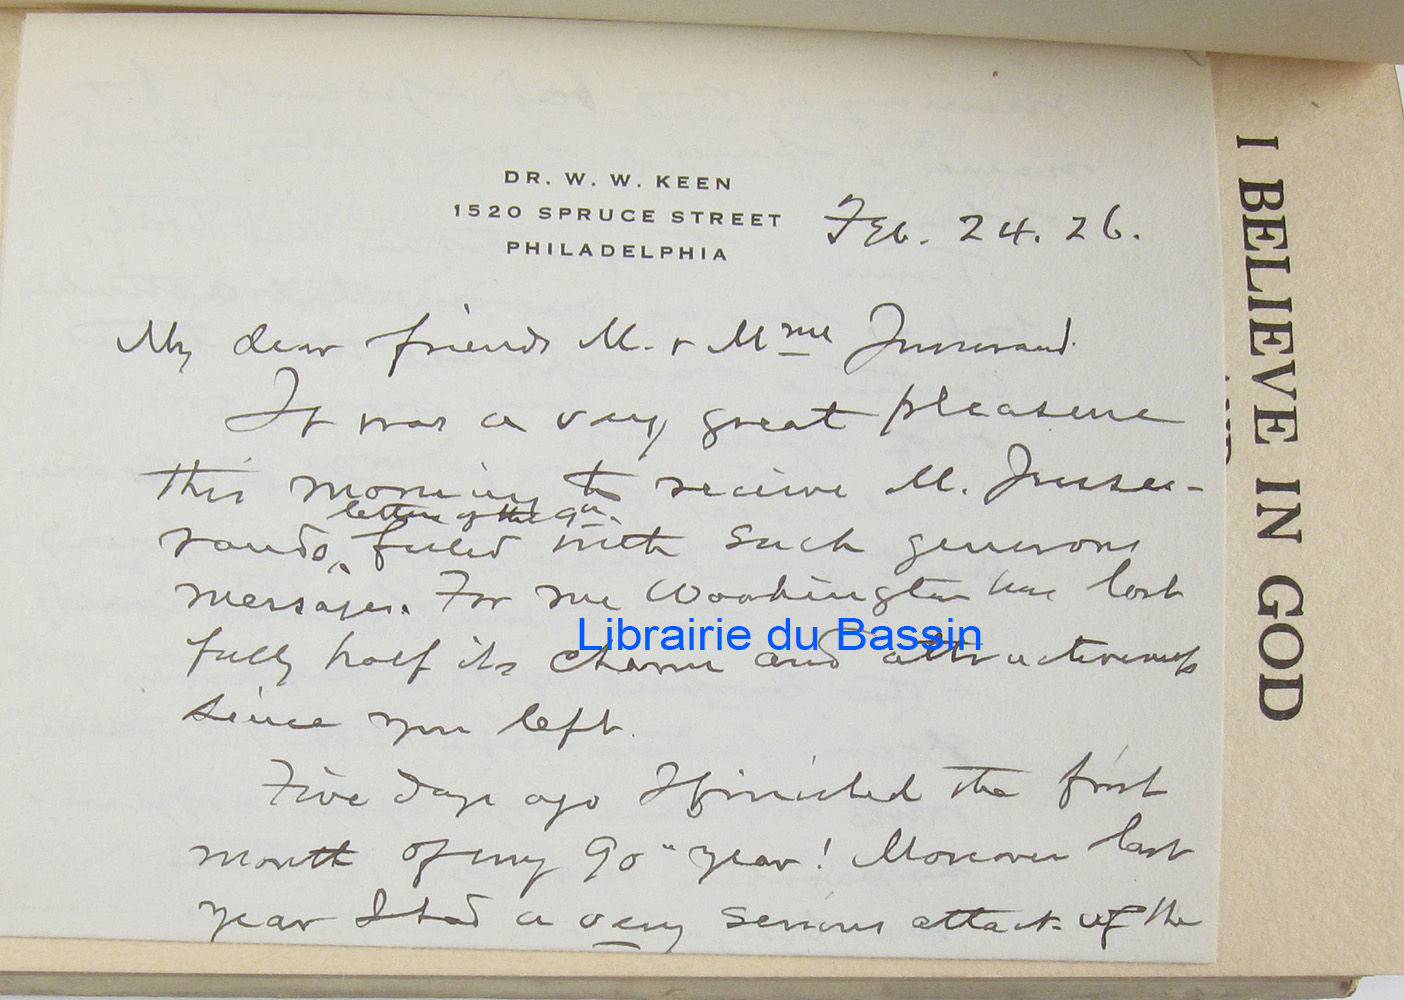 DR. W. W. KEEN
1520 SPRUCE STREET
PHILADELPHIA
Feb. 24. 26.
My dear friends M. & Mme Jusserand.
It was a very great pleasure
this morning to receive M. Jusse-
rand's letter of the 9th filled with such generous
messages. For me Washington has lost
fully half its charm and attractiveness
since you left.
Five days ago I finished the first
month of my 90" year! Moreover last
year I had a very serious attack of the
I BELIEVE IN GOD
Librairie du Bassin